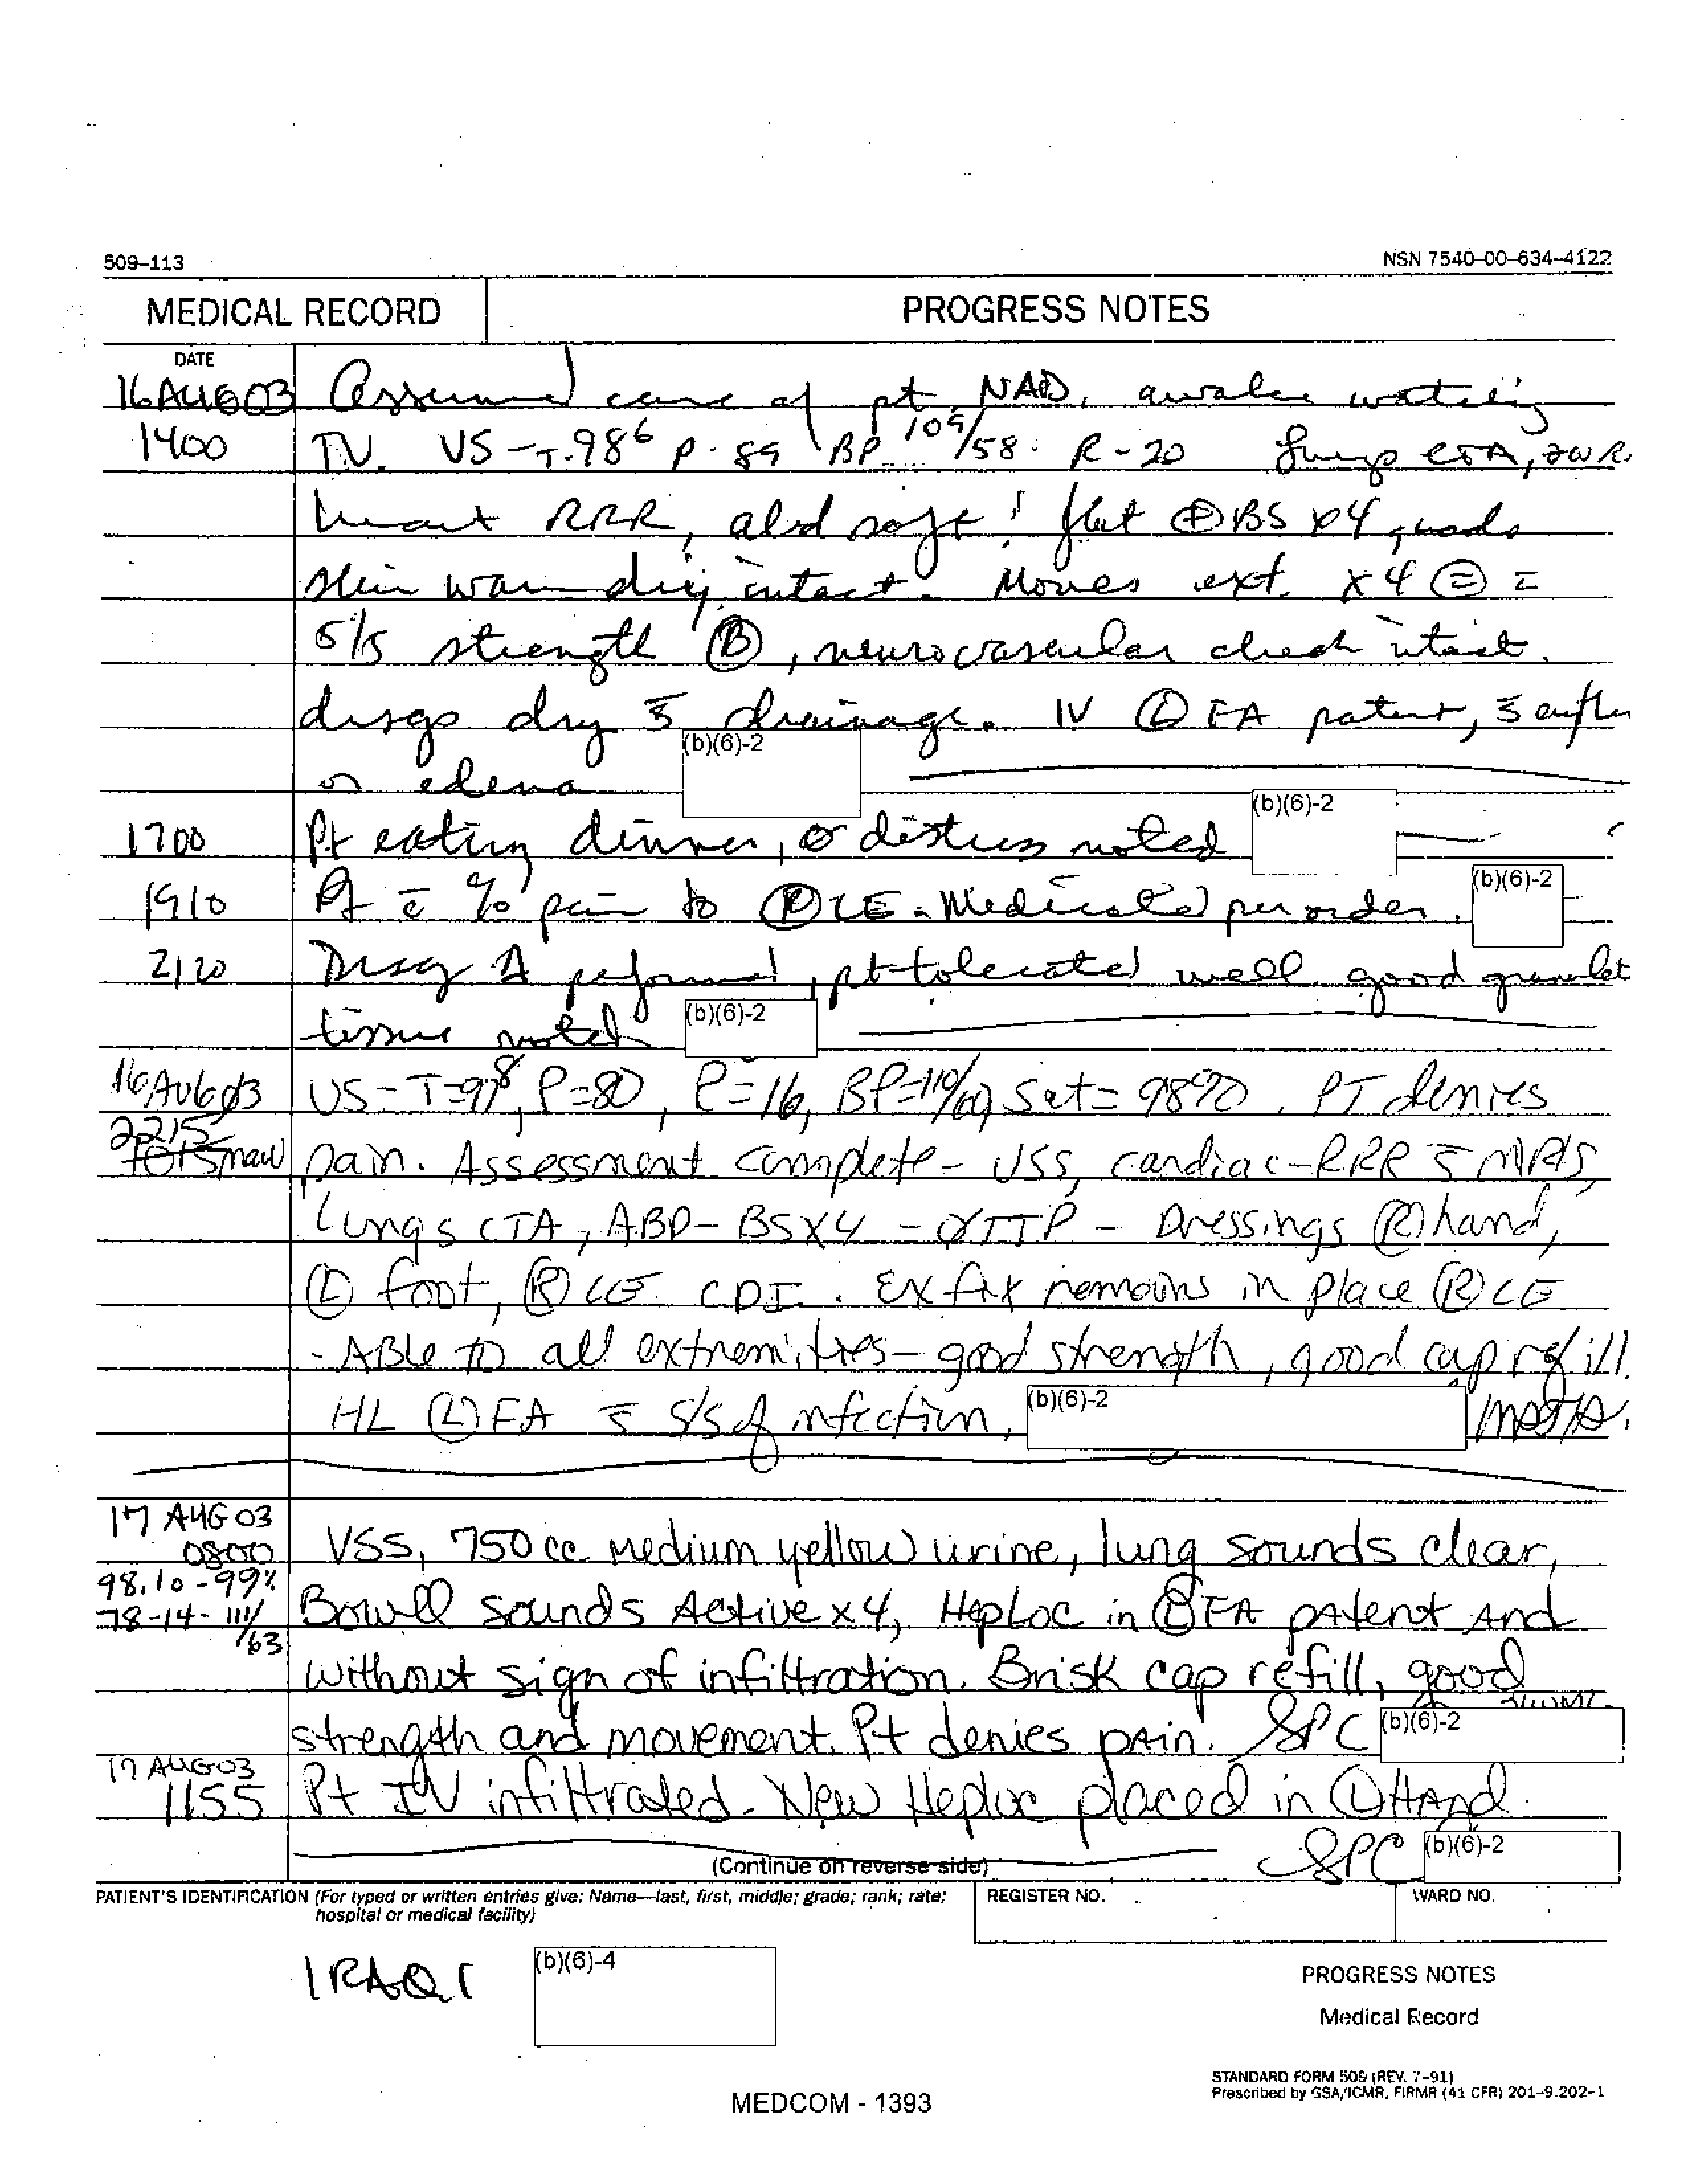 509-113
NSN 7540-00-634-4122
MEDICAL RECORD
PROGRESS NOTES
DATE
16AUG03 Assumed care of pt, NAD, awake watching
1400 TV. VS-T-98⁶ P-89 BP 109/58 R-20 Lungs CTA,
heart RRR, abd soft flat ⊕BS x4 quads
skin warm dry intact. Moves ext. x4
5/5 strength Ⓑ, neurovascular check intact.
drsgs dry s̄ drainage. IV Ⓛ FA patent, s̄
or edema (b)(6)-2
1700 Pt eating dinner, ø distress noted (b)(6)-2
1910 Pt c̄ c/o pain to Ⓡ LE. Medicated per order. (b)(6)-2
2120 Drsg Δ performed, pt tolerated well, good
tissue noted (b)(6)-2
16AUG03 VS-T=97⁸, P=80, R=16, BP=110/60, Sat=98%. PT denies
2215 pain. Assessment complete - VSS, cardiac-RRR s̄
Lungs CTA, ABD-BSX4 - ØTTP - Dressings Ⓡ hand,
Ⓛ foot, Ⓡ LE CDI. Ex fix remains in place Ⓡ LE
- ABLE TO all extremities - good strength, good cap refill.
HL Ⓛ FA s̄ S/S of infection, (b)(6)-2
17 AUG 03
0800 VSS, 750 cc medium yellow urine, lung sounds clear,
98.10-99%
78-14-111/63 Bowell sounds Active x4, Heploc in FA patent And
without sign of infiltration. Brisk cap refill, good
strength and movement. Pt denies pain. SPC (b)(6)-2
17 AUG 03
1155 Pt IV infiltrated. New Heploc placed in Ⓛ HAnd.
SPC (b)(6)-2
(Continue on reverse side)
PATIENT'S IDENTIFICATION (For typed or written entries give: Name—last, first, middle; grade; rank; rate;
hospital or medical facility)
REGISTER NO.
WARD NO.
IRAQI
(b)(6)-4
PROGRESS NOTES
Medical Record
STANDARD FORM 509 (REV. 7-91)
Prescribed by GSA/ICMR, FIRMR (41 CFR) 201-9.202-1
MEDCOM - 1393